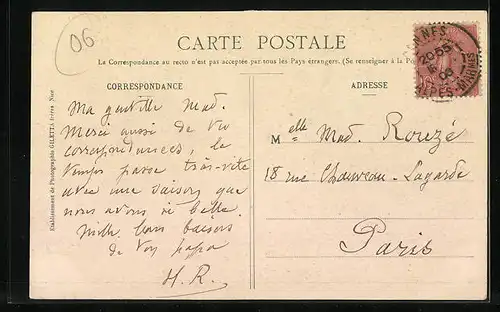 06
CARTE POSTALE
La Correspondance au recto n'est pas acceptée par tous les Pays étrangers. (Se renseigner à la Po
CORRESPONDANCE
ADRESSE
Ma gentille Mad.
Merci aussi de
correspondances, le
temps passe très-vite
avec une saison que
nous avons si belle.
Mille bons baisers
de ton papa
H.R.
Melle Mad. Rouzé
18 rue Chauveau-Lagarde
Paris
Etablissement de Photographie GILETTA frères Nice
CANNES
20-55
06
ALPES-MARITIMES